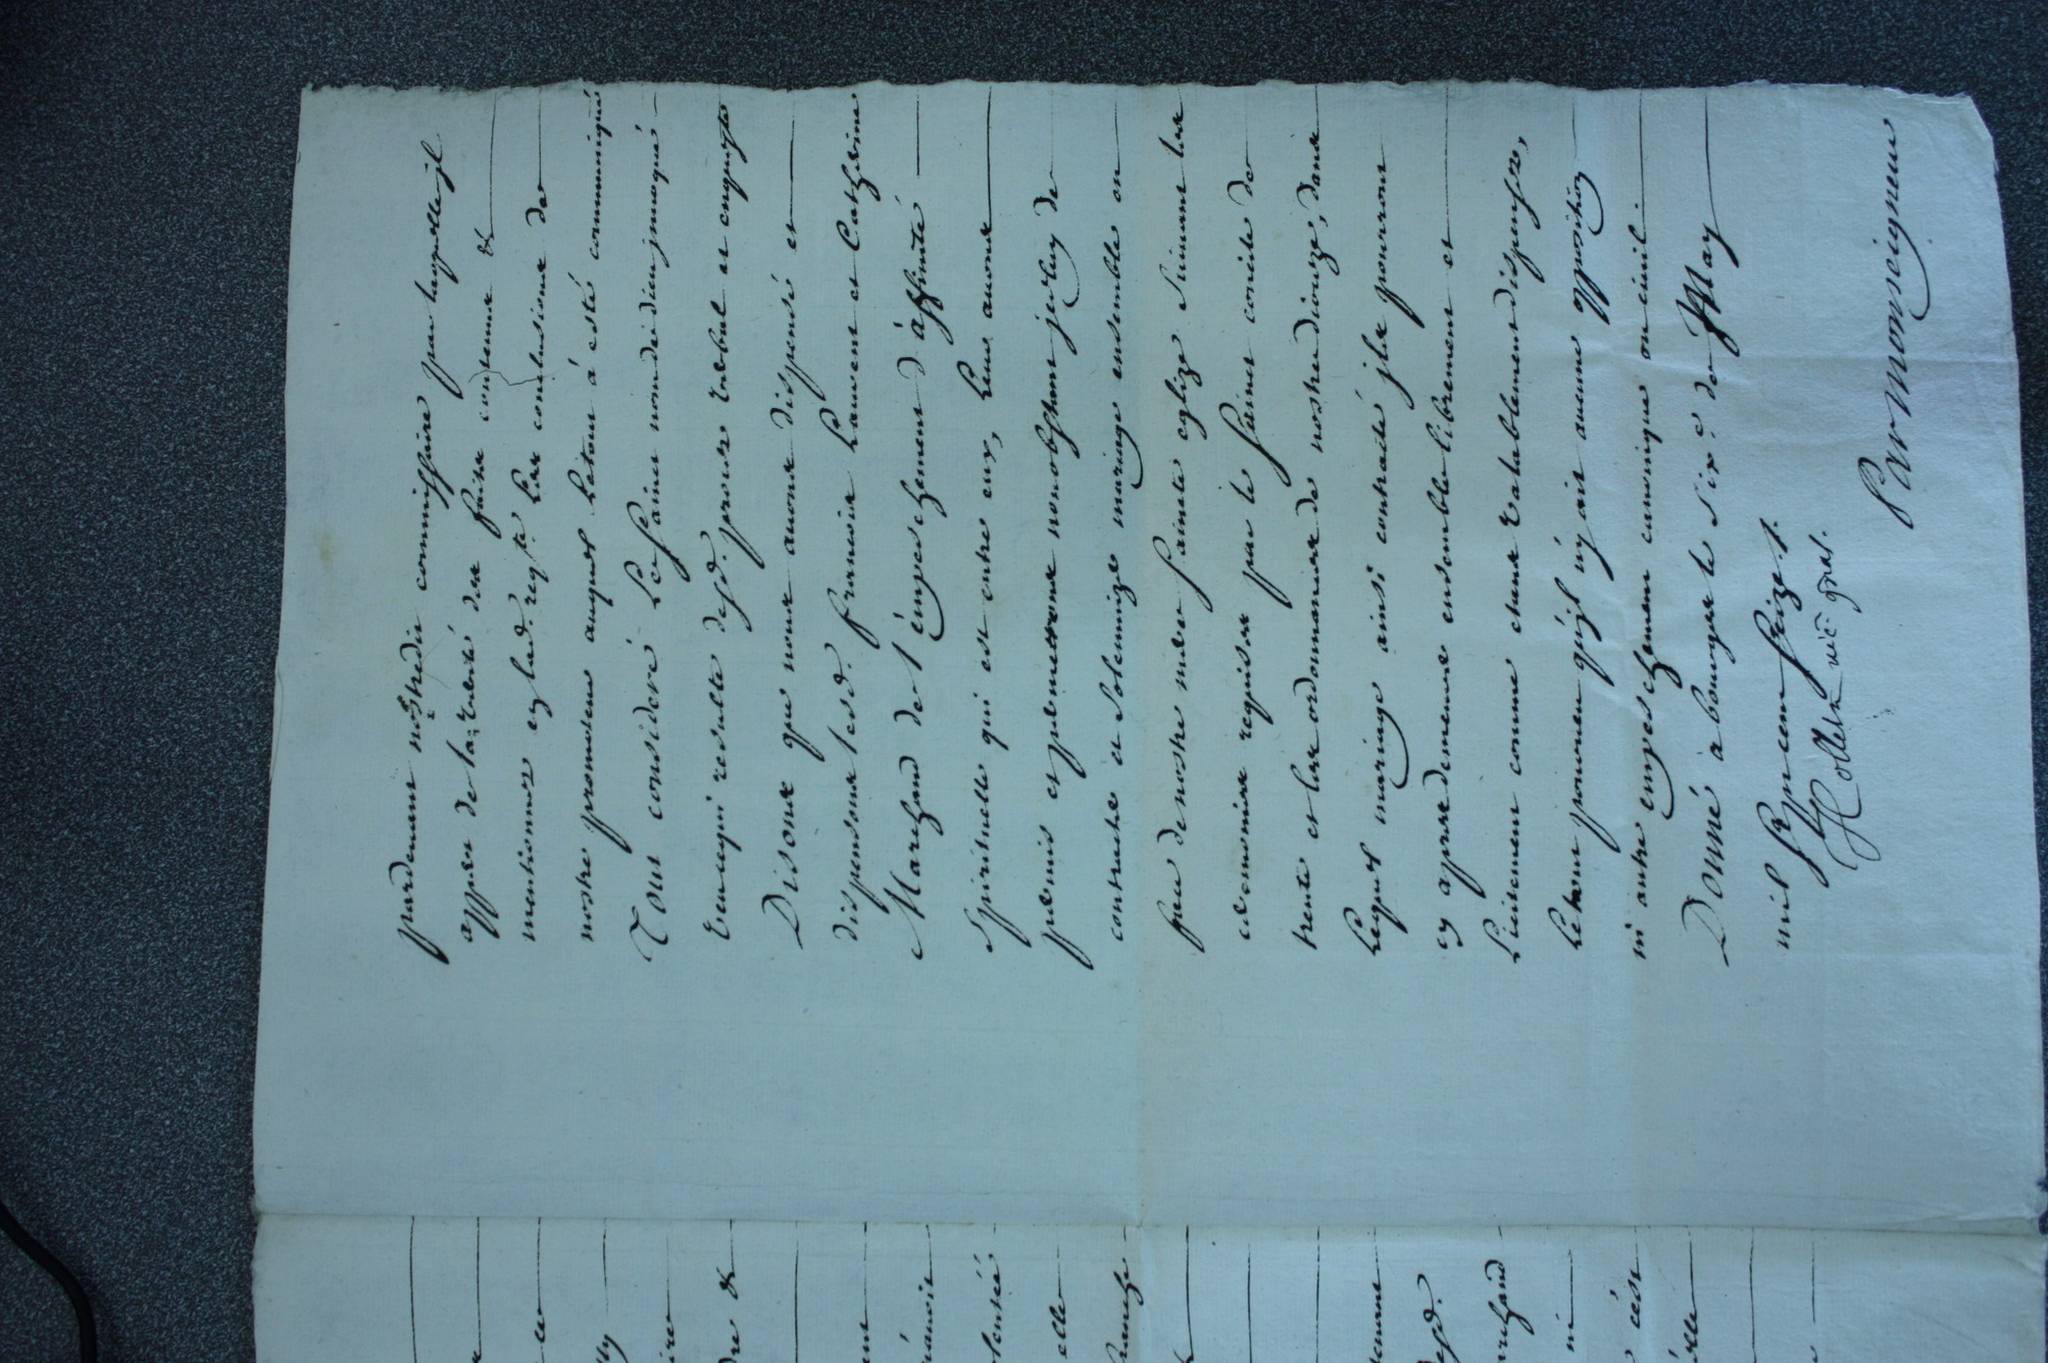 pardevant nostredit commissaire par laquelle jl
appert de la verité des faits contenus &
mentionnez en lad. reqte. Les conclusions de
nostre promoteur auquel Le tout à esté communiqué
Tout consideré Le Saint nom de dieu jnvoqué
veu ce qui resulte desd. procez verbal et enqueste
Disons que nous avons dispensé et
dispensons lesd. francois Laurent et Catherine
Marchand de l'émpeschement d'affinité
spirituelle qui est entre eux, Leur avons
permis et permettons nonobstant jceluy de
contracter et solemnizer mariage ensemble en
face de nostre mere Sainte eglize suivant les
ceremonies requises par le Saint concile de
trente et les ordonnances de nostre dioceze, dans
Lequel mariage ainsi contracté jls pourront
cy apres demeurer ensemble librement et
Licitement comme etans valablement dispensez,
Le tout pourveu qu'jl n'y ait aucune opposition
ni autre empeschement canonique ou civil.
Donné à bourges le six e. de May
mil sept cent seize
vic gnal.
Par Monseigneur
&
elle